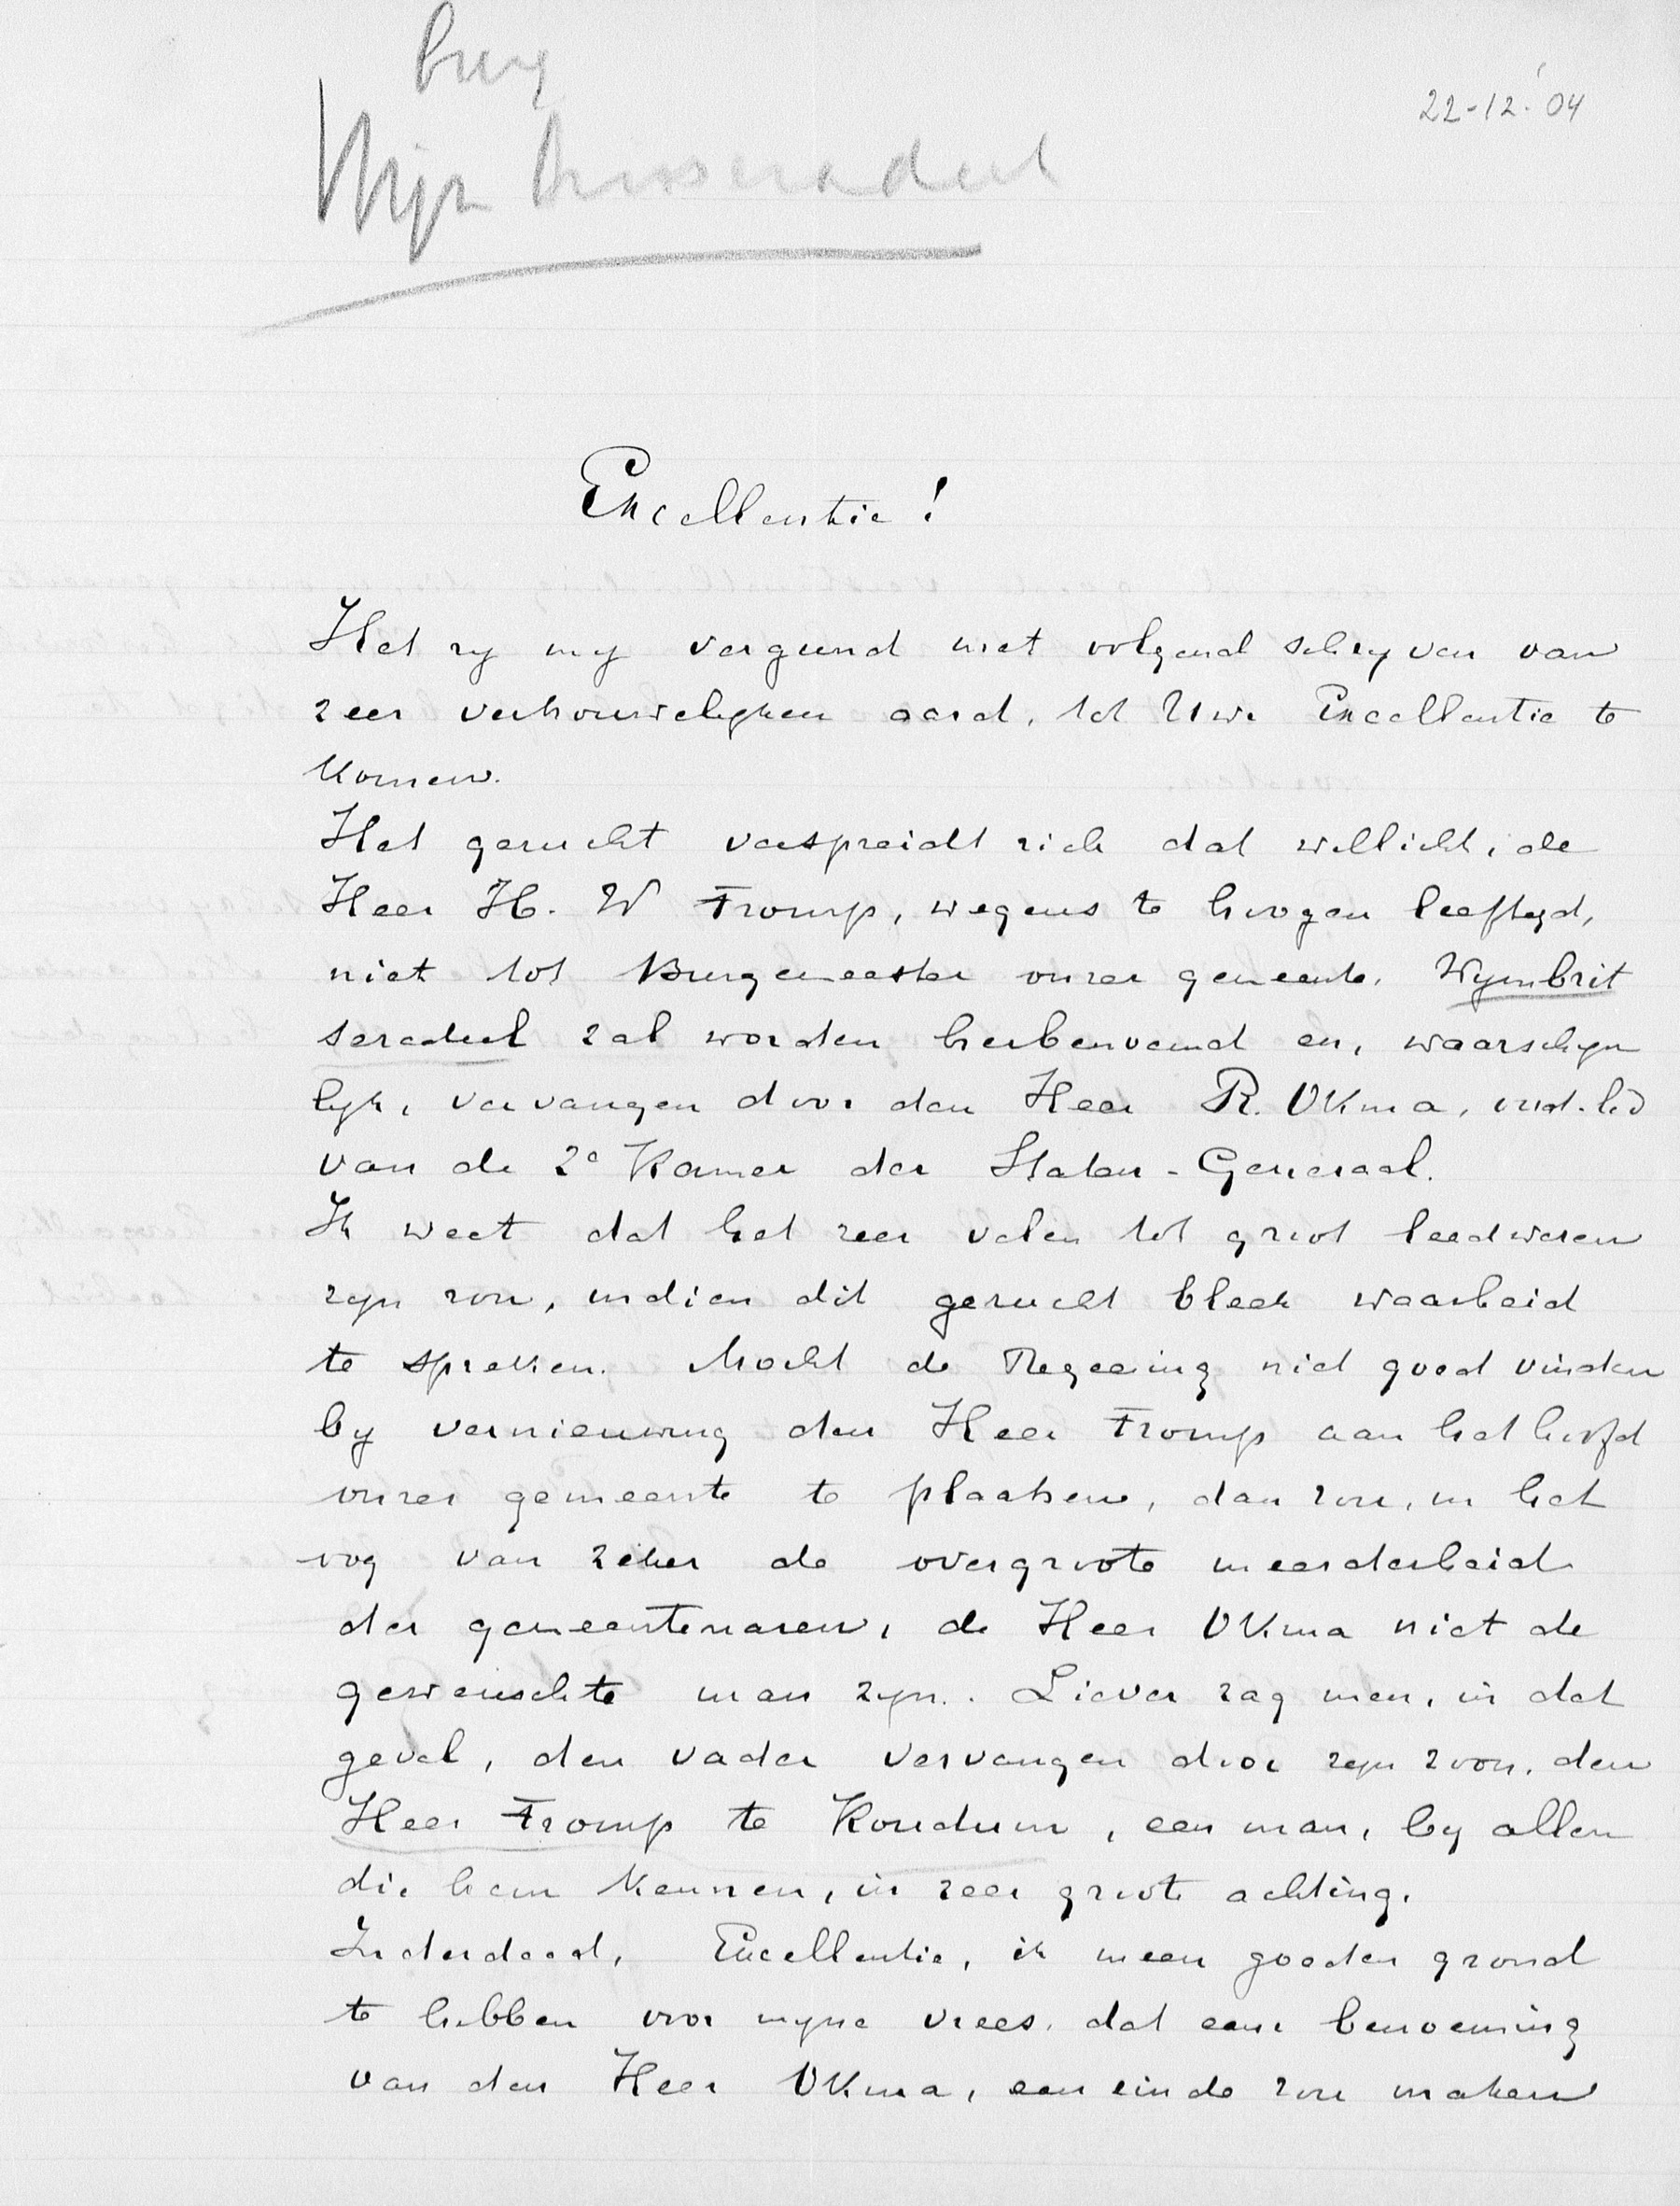 burg
22-12-'04
Wijmbritseradeel
Excellentie!
Het zy my vergund met volgend schryven van
zeer vertrouwelyken aard, tot Uwe Excellentie te
komen.
Het gerucht verspreidt zich dat wellicht, de
Heer H. W Tromp, wegens te hoogen leeftyd,
niet tot Burgemeester onzer gemeente, Wymbrit
seradeel zal worden herbenoemd en, waarschyn
lyk, vervangen door den Heer R. Okma, oud-lid
van de 2e Kamer der Staten-Generaal.
Ik weet dat het zeer velen tot groot leedwezen
zyn zou, indien dit gerucht bleek waarheid
te spreken. Mocht de Regeering niet goed vinden
by vernieuwing den Heer Tromp aan het hoofd
onzer gemeente te plaatsen, dan zou, in het
oog van zeker de overgroote meerderheid
der gemeentenaren, de Heer Okma niet de
gewenschte man zyn. Liever zag men, in dat
geval, den vader vervangen door zyn zoon, den
Heer Tromp te Koudum, een man, by allen
die hem kennen, in zeer groote achting.
Inderdaad, Excellentie, ik meen goeden grond
te hebben voor myne vrees, dat eene benoeming
van den Heer Okma, een einde zou maken